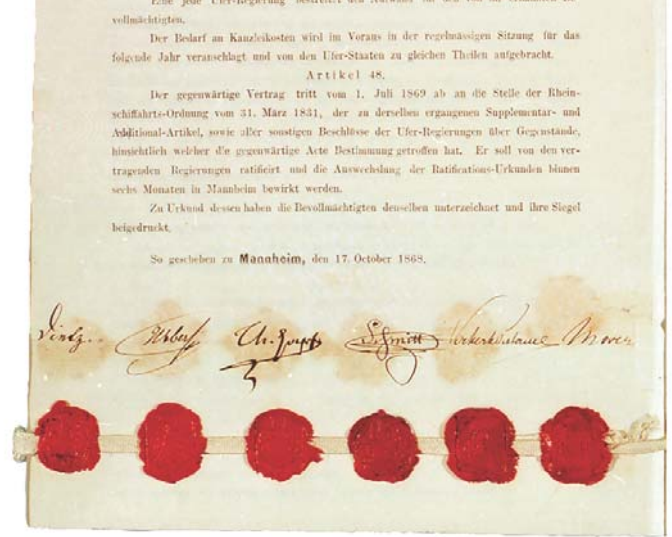 Eine jede Ufer-Regierung bestreitet den Aufwand für den von ihr
vollmächtigten.
Der Bedarf an Kanzleikosten wird im Voraus in der regelmässigen Sitzung für das
folgende Jahr veranschlagt und von den Ufer-Staaten zu gleichen Theilen aufgebracht.
Artikel 48.
Der gegenwärtige Vertrag tritt vom 1. Juli 1869 ab an die Stelle der Rhein-
schiffahrts-Ordnung vom 31. März 1831, der zu derselben ergangenen Supplementar- und
Additional-Artikel, sowie aller sonstigen Beschlüsse der Ufer-Regierungen über Gegenstände,
hinsichtlich welcher die gegenwärtige Acte Bestimmung getroffen hat. Er soll von den ver-
tragenden Regierungen ratificirt und die Auswechslung der Ratifications-Urkunden binnen
sechs Monaten in Mannheim bewirkt werden.
Zu Urkund dessen haben die Bevollmächtigten denselben unterzeichnet und ihre Siegel
beigedruckt.
So geschehen zu Mannheim, den 17. October 1868.
Dietz. Schmitt